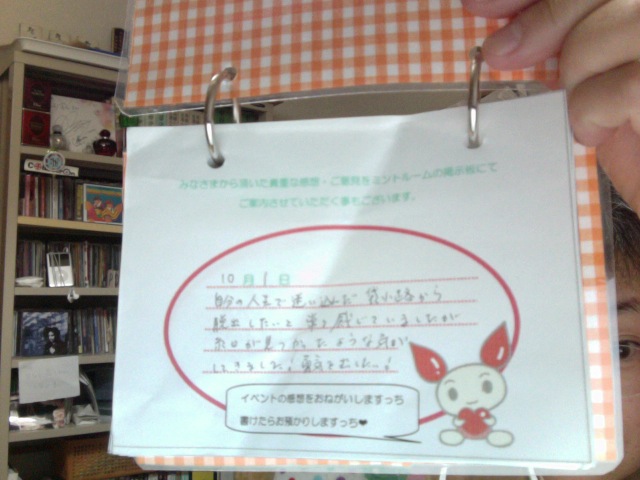 みなさまから頂いた貴重な感想・ご意見をミントルームの掲示板にて
ご案内させていただく事もございます。
10月1日
自分の人生で迷い込んだ袋小路から
脱出したいと 感じていましたが
糸口が見つかったような気が
してきました!
イベントの感想をおねがいしますっち
書けたらお預かりしますっち♥